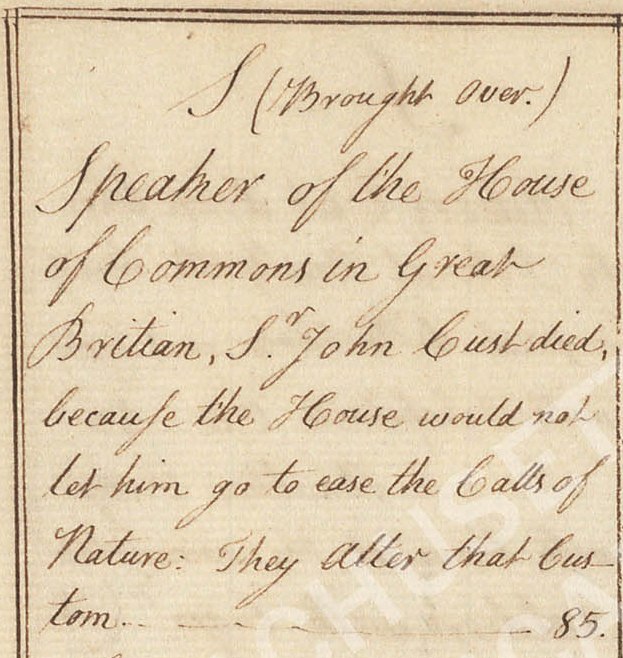 S (Brought over.)
Speaker of the House
of Commons in Great
Britian, S.r John Cust died,
becauſe the House would not
let him go to ease the Calls of
Nature: They alter that Cus-
tom. 85.